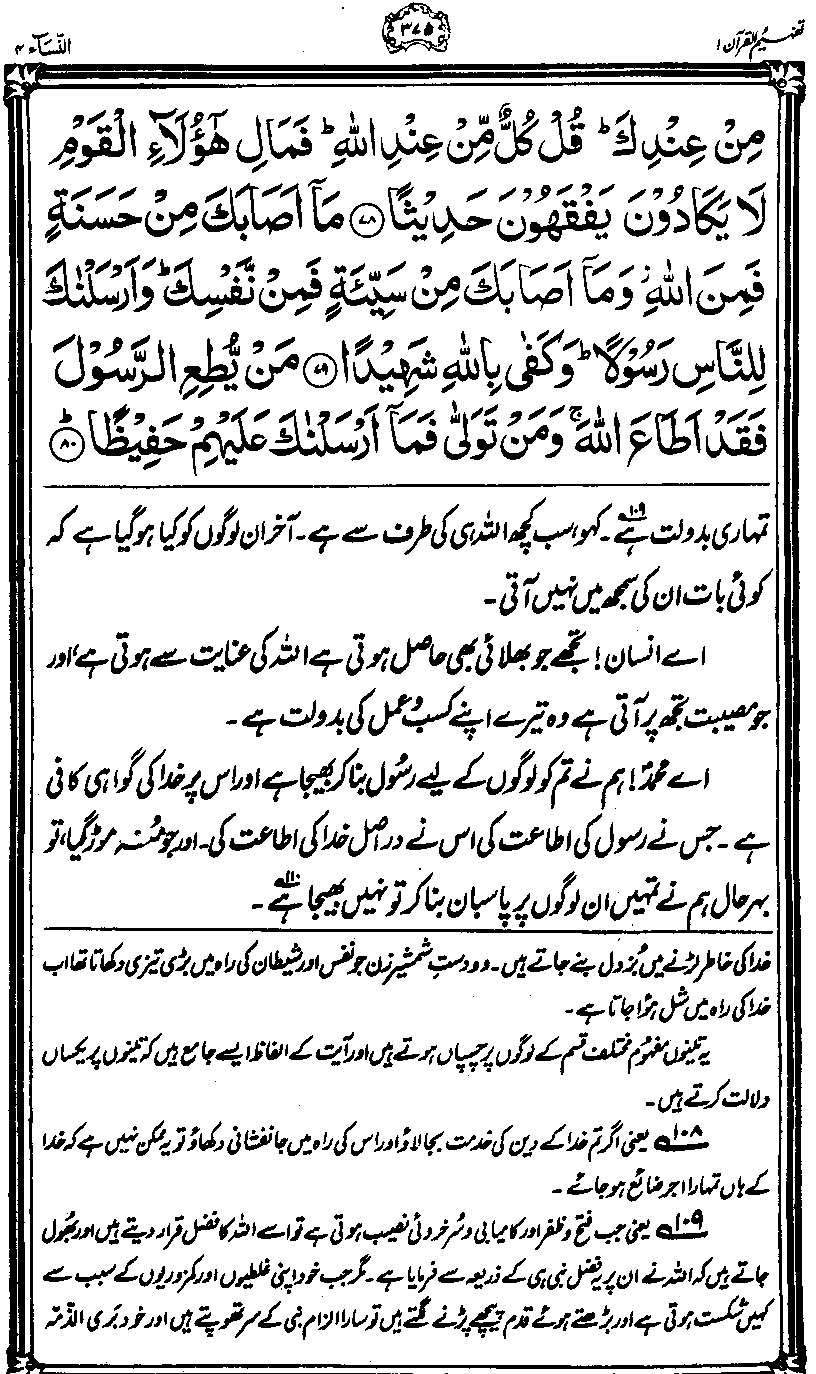 تفہیم القرآن ۱
۳۷۵
النساء ۴
مِنْ عِنْدِكَ ؕ قُلْ كُلٌّ مِّنْ عِنْدِ اللّٰهِ ؕ فَمَالِ هٰۤؤُلَآءِ الْقَوْمِ
لَا يَكَادُوْنَ يَفْقَهُوْنَ حَدِيْثًا ﴿۷۸﴾ مَاۤ اَصَابَكَ مِنْ حَسَنَةٍ
فَمِنَ اللّٰهِ ؗ وَمَاۤ اَصَابَكَ مِنْ سَيِّئَةٍ فَمِنْ نَّفْسِكَ ؕ وَاَرْسَلْنٰكَ
لِلنَّاسِ رَسُوْلًا ؕ وَكَفٰى بِاللّٰهِ شَهِيْدًا ﴿۷۹﴾ مَنْ يُّطِعِ الرَّسُوْلَ
فَقَدْ اَطَاعَ اللّٰهَ ۚ وَمَنْ تَوَلّٰى فَمَاۤ اَرْسَلْنٰكَ عَلَيْهِمْ حَفِيْظًا ؕ ﴿۸۰﴾
تمہاری بدولت ہے۱۰۹۔ کہو، سب کچھ اللہ ہی کی طرف سے ہے۔ آخر ان لوگوں کو کیا ہو گیا ہے کہ
کوئی بات ان کی سمجھ میں نہیں آتی۔
اے انسان! تجھے جو بھلائی بھی حاصل ہوتی ہے اللہ کی عنایت سے ہوتی ہے، اور
جو مصیبت تجھ پر آتی ہے وہ تیرے اپنے کسب و عمل کی بدولت ہے۔
اے محمدؐ! ہم نے تم کو لوگوں کے لیے رسُول بنا کر بھیجا ہے اور اس پر خدا کی گواہی کافی
ہے۔ جس نے رسول کی اطاعت کی اس نے دراصل خدا کی اطاعت کی۔ اور جو مُنہ موڑ گیا، تو
بہرحال ہم نے تمہیں ان لوگوں پر پاسبان بنا کر تو نہیں بھیجا ہے۱۱۰۔
خدا کی خاطر لڑنے میں بُزدل بنے جاتے ہیں۔ وہ دستِ شمشیر زن جو نفس اور شیطان کی راہ میں بڑی تیزی دکھاتا تھا اب
خدا کی راہ میں شل ہؤا جاتا ہے۔
یہ تینوں مفہُوم مختلف قسم کے لوگوں پر چسپاں ہوتے ہیں اور آیت کے الفاظ ایسے جامع ہیں کہ تینوں پر یکساں
دلالت کرتے ہیں۔
۱۰۸؎ یعنی اگر تم خدا کے دین کی خدمت بجا لاؤ اور اس کی راہ میں جانفشانی دکھاؤ تو یہ ممکن نہیں ہے کہ خدا
کے ہاں تمہارا اجر ضائع ہو جائے۔
۱۰۹؎ یعنی جب فتح و ظفر اور کامیابی و سُرخروئی نصیب ہوتی ہے تو اسے اللہ کا فضل قرار دیتے ہیں اور بھُول
جاتے ہیں کہ اللہ نے ان پر یہ فضل نبی ہی کے ذریعہ سے فرمایا ہے۔ مگر جب خود اپنی غلطیوں اور کمزوریوں کے سبب سے
کہیں شکست ہوتی ہے اور بڑھتے ہوئے قدم پیچھے پڑنے لگتے ہیں تو سارا الزام نبی کے سر تھوپتے ہیں اور خود بَری الذّمہ